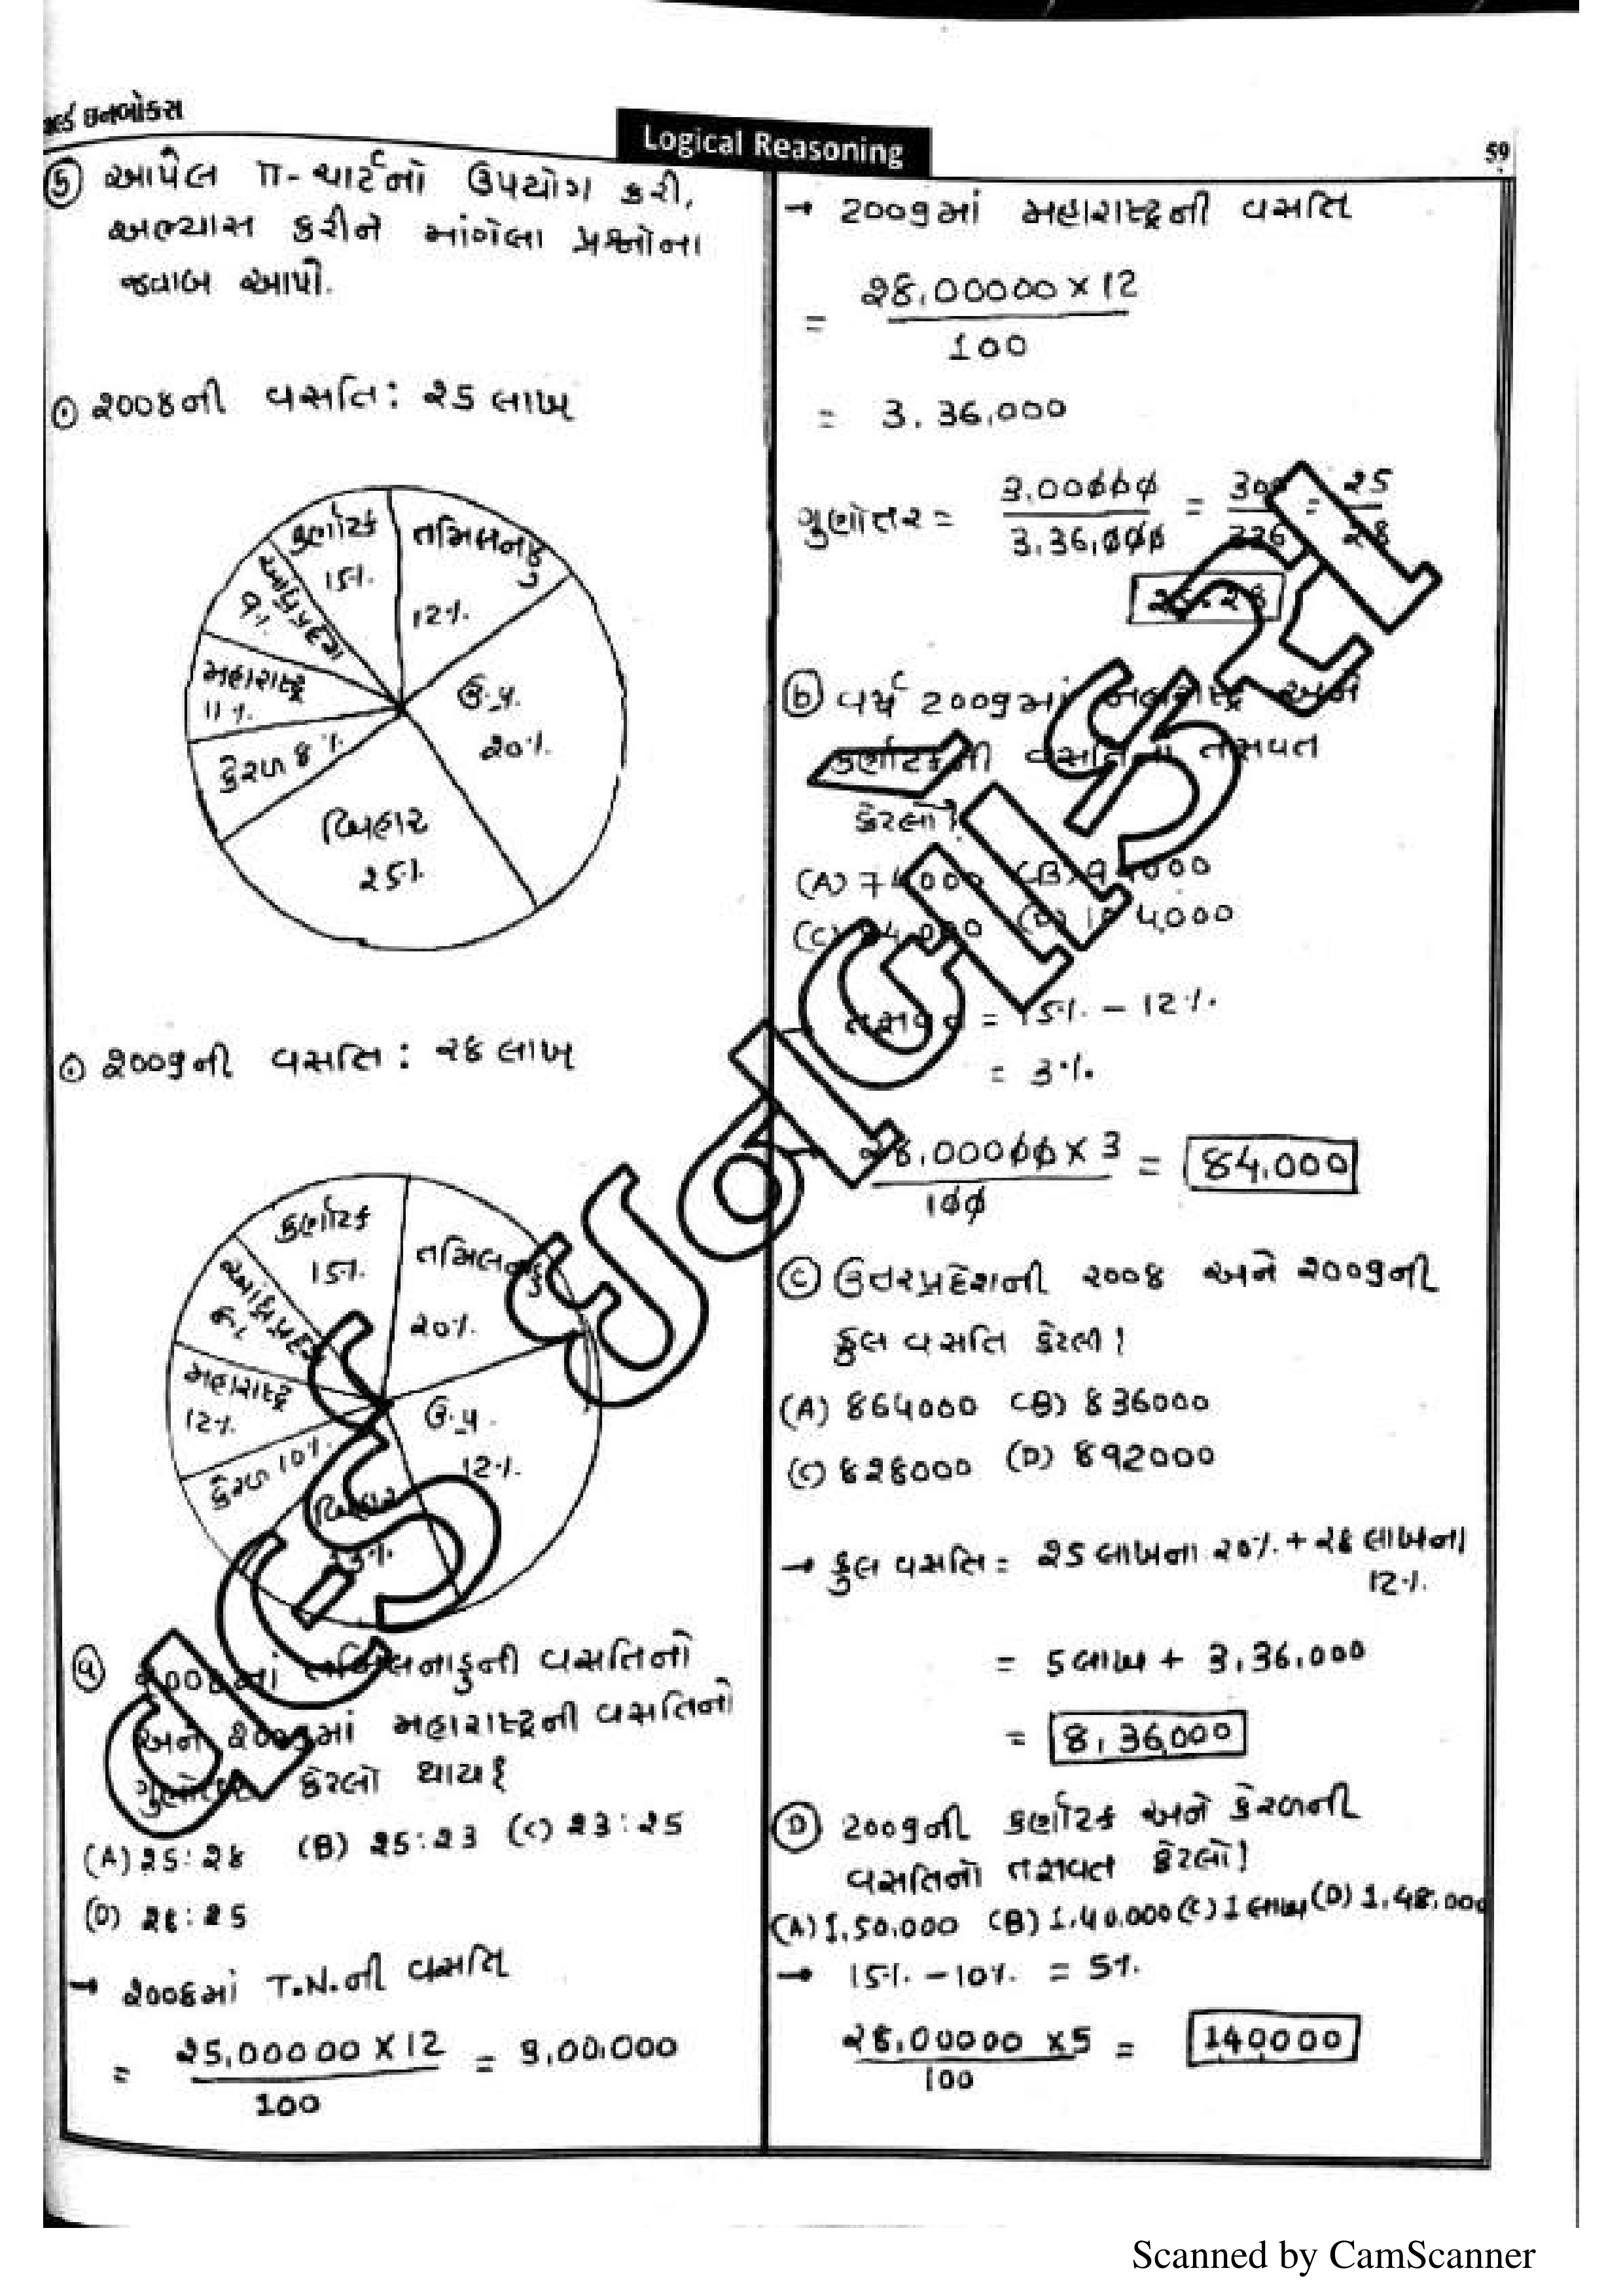 વર્લ્ડ ઇનબોક્સ
Logical Reasoning
59
⑤ આપેલ π-ચાર્ટનો ઉપયોગ કરી,
અભ્યાસ કરીને માંગેલા પ્રશ્નોના
જવાબ આપો.
⊙ ૨૦૦૪ની વસતિ: ૨5 લાખ
કર્ણાટક
15%
તમિલનાડુ
12%
આંધ્રપ્રદેશ
9%
મહારાષ્ટ્ર
11%
કેરળ 8%
ઉ.પ્ર.
૨0%
બિહાર
૨5%
⊙ ૨૦૦૬ની વસતિ: ૨8 લાખ
કર્ણાટક
15%
તમિલનાડુ
૨0%
આંધ્રપ્રદેશ
મહારાષ્ટ્ર
12%
કેરળ 10%
ઉ.પ્ર.
12%
બિહાર
ⓐ તમિલનાડુની વસતિનો
અને મહારાષ્ટ્રની વસતિનો
ગુણોત્તર કેટલો થાય?
(A) ૨5:૨8 (B) ૨5:૨3 (C) ૨3:૨5
(D) ૨8:૨5
→ T.N.ની વસતિ
= ૨5,00000 X 12 / 100 = 3,00,000
→ 2009માં મહારાષ્ટ્રની વસતિ
= ૨8,00000 x 12 / 100
= 3,36,000
ગુણોત્તર = 3,00000 / 3,36,000 = 300 / 336 = ૨5 / ૨8
૨5:૨8
ⓑ વર્ષ 2009માં મહારાષ્ટ્ર અને
કર્ણાટકની વસતિનો તફાવત
કેટલો?
(A) 74000 (B) 94000
(C) 84,000 (D) 104,000
તફાવત = 15% - 12%
= 3%
૨8,00000 x 3 / 100 = 84,000
ⓒ ઉત્તરપ્રદેશની ૨00૪ અને ૨009ની
કુલ વસતિ કેટલી?
(A) 864000 (B) 836000
(C) 828000 (D) 892000
→ કુલ વસતિ = ૨5 લાખના ૨0% + ૨8 લાખના
12%
= 5 લાખ + 3,36,000
= 8,36,000
Ⓓ 2009ની કર્ણાટક અને કેરળની
વસતિનો તફાવત કેટલો?
(A) 1,50,000 (B) 1,40,000 (C) 1 લાખ (D) 1,48,000
→ 15% - 10% = 5%
૨8,00000 x 5 / 100 = 140000
Scanned by CamScanner